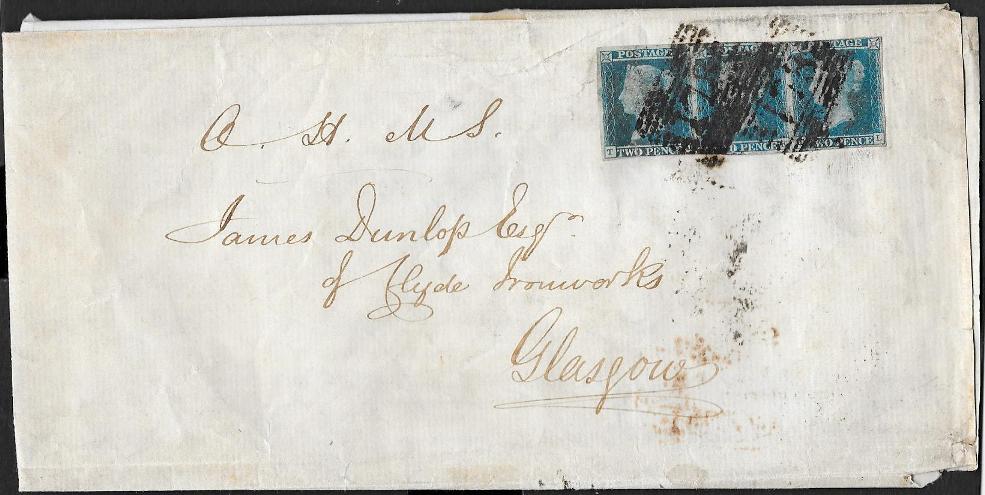 POSTAGE TAGE
T TWO PENCE O PENCE TWO PENCE L
O. H. M. S.
James Dunlop Esqr.
of Clyde Ironworks
Glasgow